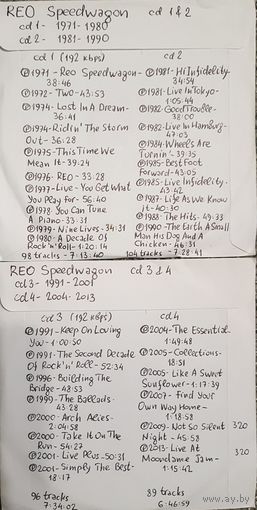 REO Speedwagon cd 1 & 2
cd 1- 1971-1980
cd 2- 1981-1990
cd 1 (192 kbps)
℗1971-Reo Speedwagon-
38:46
℗1972-Two-43:53
℗1974-Lost In A Dream-
36:41
℗1974-Ridin' The Storm
Out-36:28
℗1975-This Time We
Mean It-39:24
℗1976-REO-33:28
℗1977-Live-You Get What
You Play for-56:40
℗1978-You Can Tune
A Piano-33:31
℗1979-Nine Lives-34:31
℗1980-A Decade Of
Rock'n'Roll-1:20:14
98 tracks - 7:13:40
cd 2
℗1981-Hi Infidelity-
34:54
℗1981-Live In Tokyo-
1:05:44
℗1982-Good Trouble-
38:00
℗1982-Live In Hamburg-
47:03
℗1984-Wheels Are
Turnin'-39:35
℗1985-Best Foot
Forward-43:05
℗1985-Live Infidelity-
43:42
℗1987-Life As We Know
It-40:30
℗1988-The Hits-49:33
℗1990-The Earth A Small
Man His Dog And A
Chicken-46:31
104 tracks - 7:28:41
REO Speedwagon cd 3 & 4
cd 3- 1991-2001
cd 4- 2004-2013
cd 3 (192 kbps)
℗1991-Keep On Loving
You-1:00:50
℗1991-The Second Decade
Of Rock'n'Roll-52:34
℗1996-Building The
Bridge-48:53
℗1999-The Ballads-
43:28
℗2000-Arch Allies-
2:04:58
℗2000-Take It On The
Run-54:27
℗2001-Live Plus-50:31
℗2001-Simply The Best-
18:17
96 tracks
7:34:02
cd 4
℗2004-The Essential-
1:49:48
℗2005-Collections-
18:51
℗2005-Like A Sweet
Sunflower-1:17:39
℗2007-Find Your
Own Way Home-
1:18:58
℗2009-Not So Silent 320
Night-45:58
℗2013-Live At
Moondance Jam- 320
1:15:42
89 tracks
6:46:59
www.ay.by